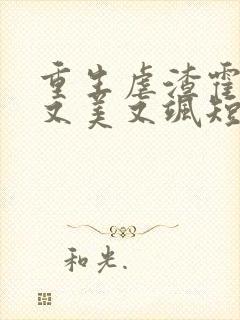 重生虐渣霍
又美又飒短
和光.